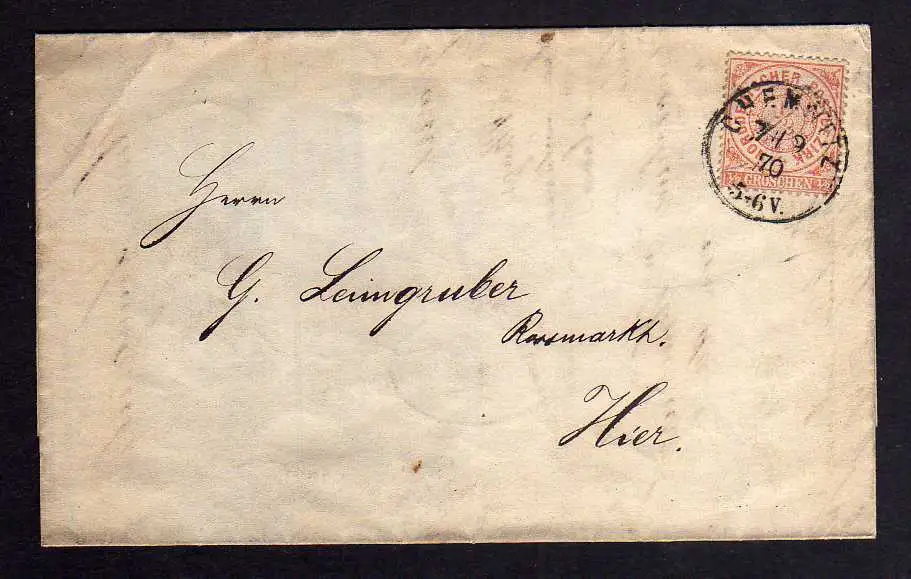 NORDDEUTSCHER POSTBEZIRK
1/2 GROSCHEN 1/2
CHEMNITZ
7/I 9
70
5-6 V.
Herrn
G. Leimgruber
Rossmarkt.
Hier.